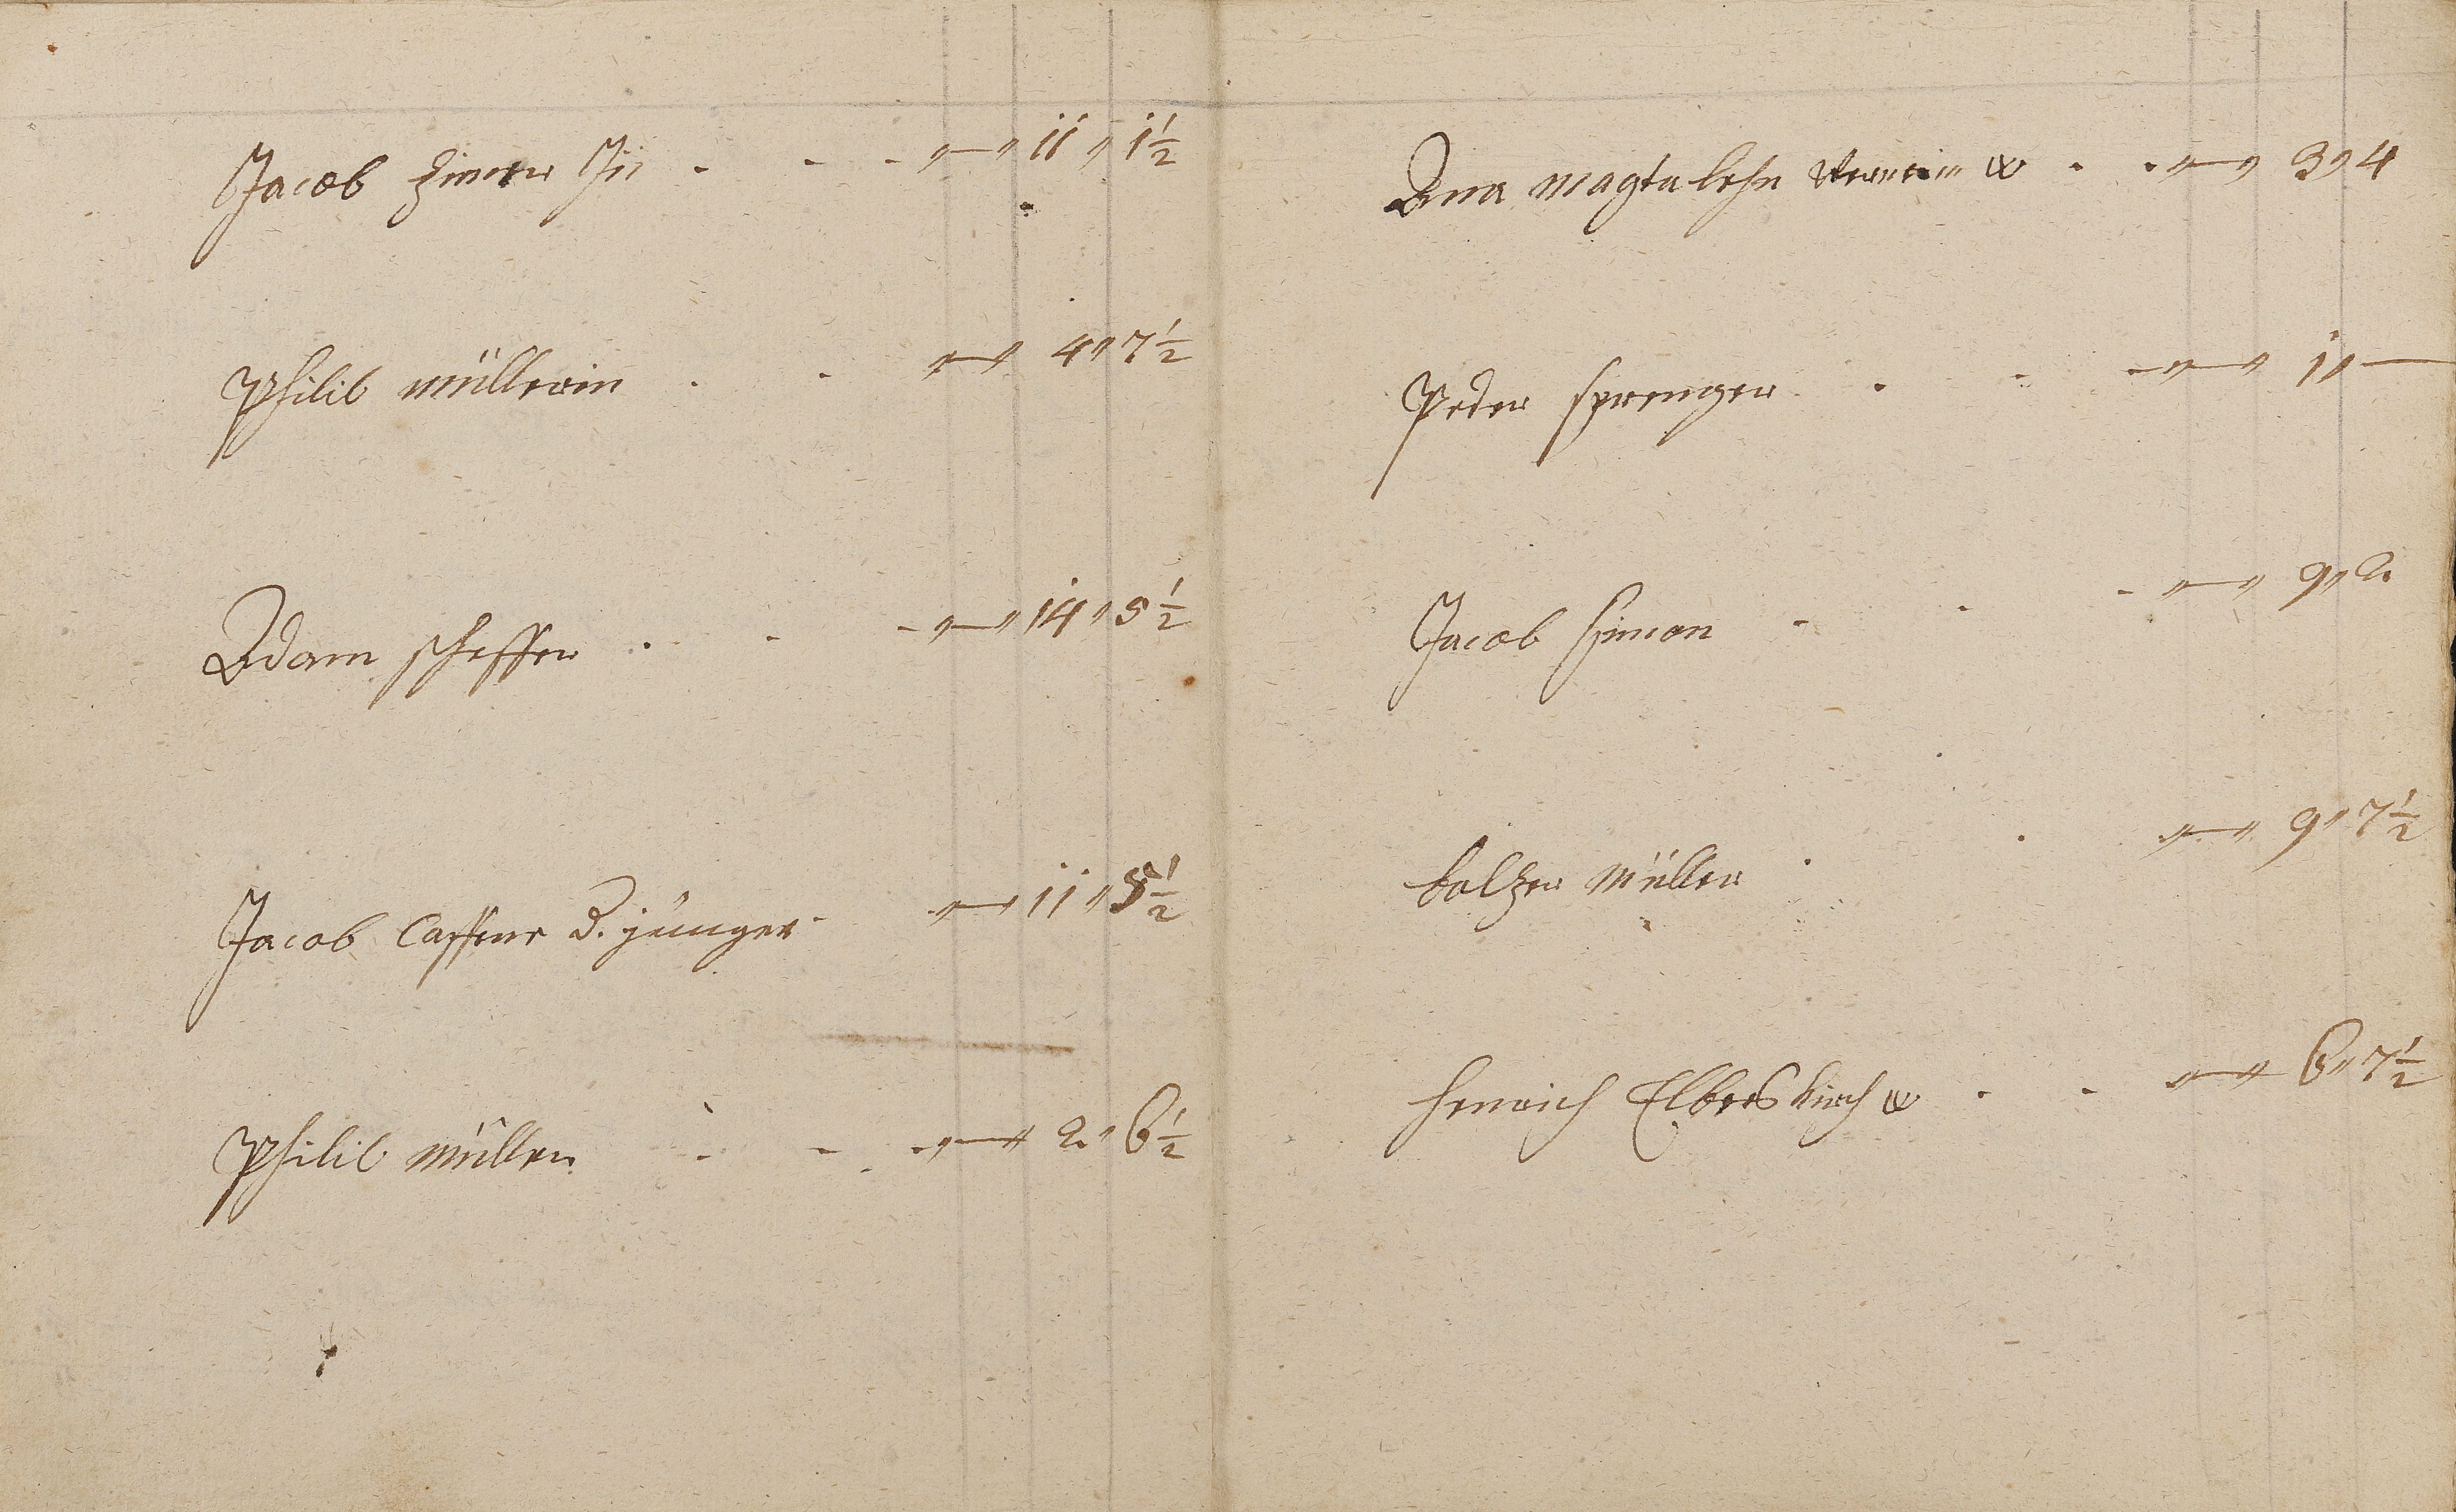 Jacob Zimer Jü - - - „—„ 11 „ 1½
Philib Müllerin - - „—„ 4 „ 7½
Adam scheffer - - - „—„ 14 „ 5½
Jacob Casser D. jünger - „—„ 11 „ 5½
Philib Müller - - - „—„ 2 „ 6½
Anna Magtalehn - - „—„ 3 „ 4
Peder sprenger - - - „—„ 1 „ —
Jacob Simon - - - „—„ 9 „ 2
balzer Müller - - „—„ 9 „ 7½
henrich Elberskirch - - „—„ 6 „ 7½